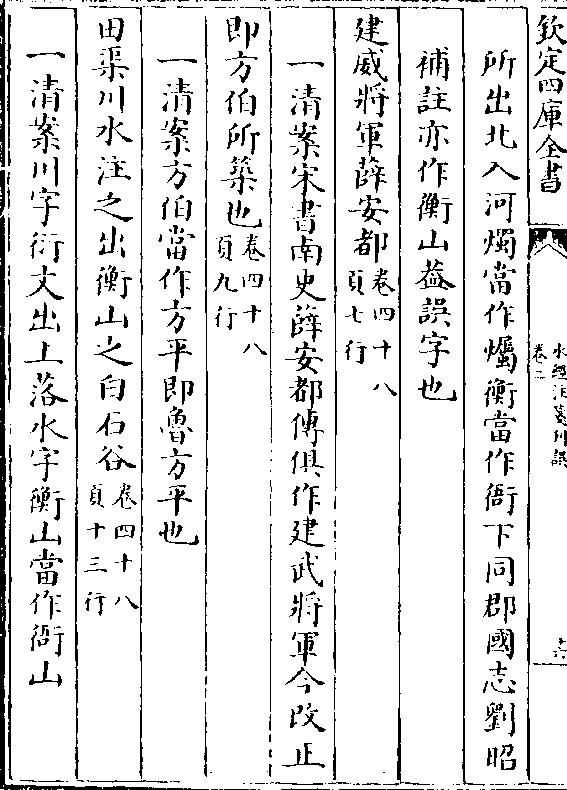 欽定四庫全書
水經注箋刊誤
所出北入河燭當作爥衡當作衙下同郡國志劉昭
補註亦作衡山葢誤字也
建威將軍薛安都卷四十八頁七行
一清案宋書南史薛安都傳俱作建武將軍今改正
即方伯所築也卷四十八頁九行
一清案方伯當作方平即魯方平也
田渠川水注之出衡山之白石谷卷四十八頁十三行
一清案川字衍文出上落水字衡山當作衙山